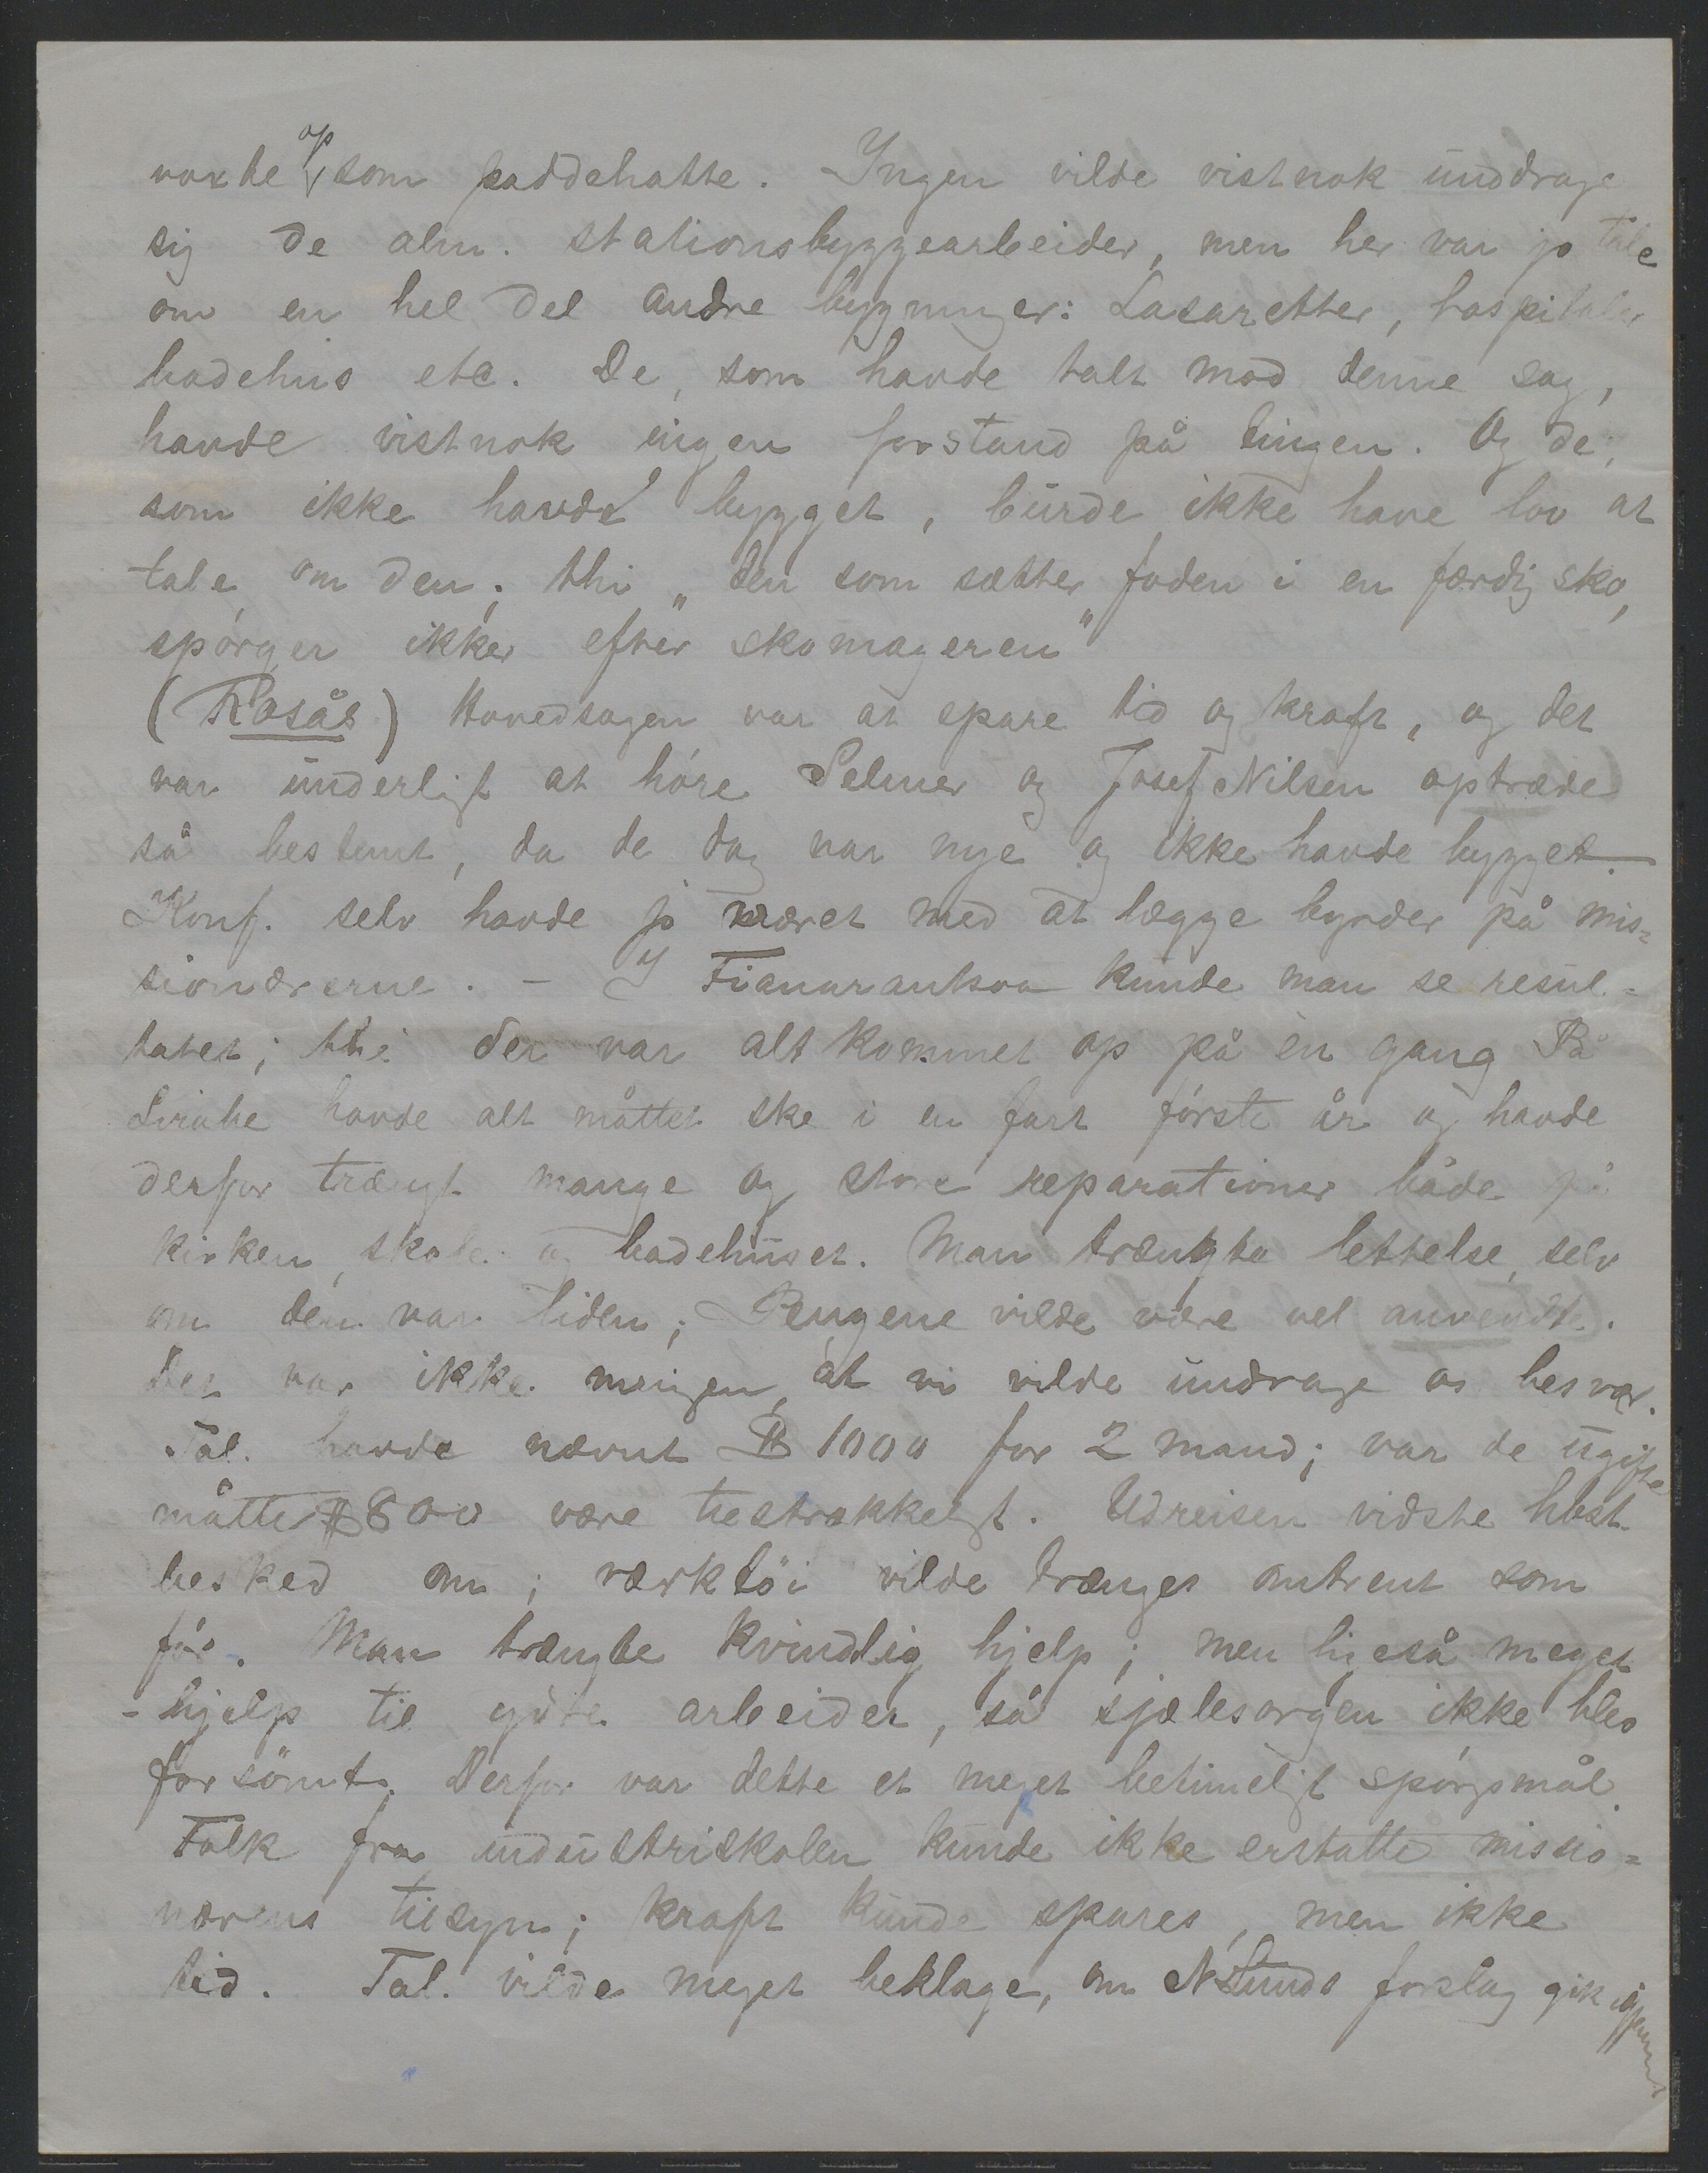 voxte op som paddehatte. Ingen vilde vistnok unddrage
sig de alm. stationsbyggearbeider, men her var jo tale
om en hel del andre bygninger: Lasaretter, hospitaler
badehus etc. De, som havde talt mod denne sag,
havde vistnok ingen forstand på tingen. Og de,
som ikke havde bygget, burde ikke have lov at
tale om den; thi „den som sætter foden i en færdig sko,
spörger ikke efter skomageren"
(Rosås) Hovedsagen var at spare tid og kraft, og det
var underligt at höre Selmer og Josef Nilsen optræde
så bestemt, da de dog var nye og ikke havde bygget.
Konf. selv havde jo været med at lægge byrder på mis=
sionærerne. - I Fianarantsoa kunde man se resul=
tatet; thi der var alt kommet op på en gang På
Sirabe havde alt måttet ske i en fart förste år og havde
derfor trængt mange og store reparationer både på
kirken, skole og badehuset. Man trængte lettelse, selv
om den var liden; Pengene vilde være vel anvendte.
Det var ikke meningen, at vi vilde undrage os besvær.
Tal. havde nævnt $ 1000 for 2 mand; var de ugifte
måtte $ 800 være tilstrækkeligt. Udreisen vidste best.
besked om; værktöi vilde trænges omtrent som
för. Man trængte kvindlig hjelp; men ligeså meget
- hjelp til ydre arbeider, så sjælesorgen ikke blev
forsömt. Derfor var dette et meget betimeligt spörgsmål.
Folk fra industriskolen kunde ikke erstatte missio=
nærens tilsyn; kraft kunde spares, men ikke
tid. Tal. vilde meget beklage, om N Lunds forslag gik igjennem